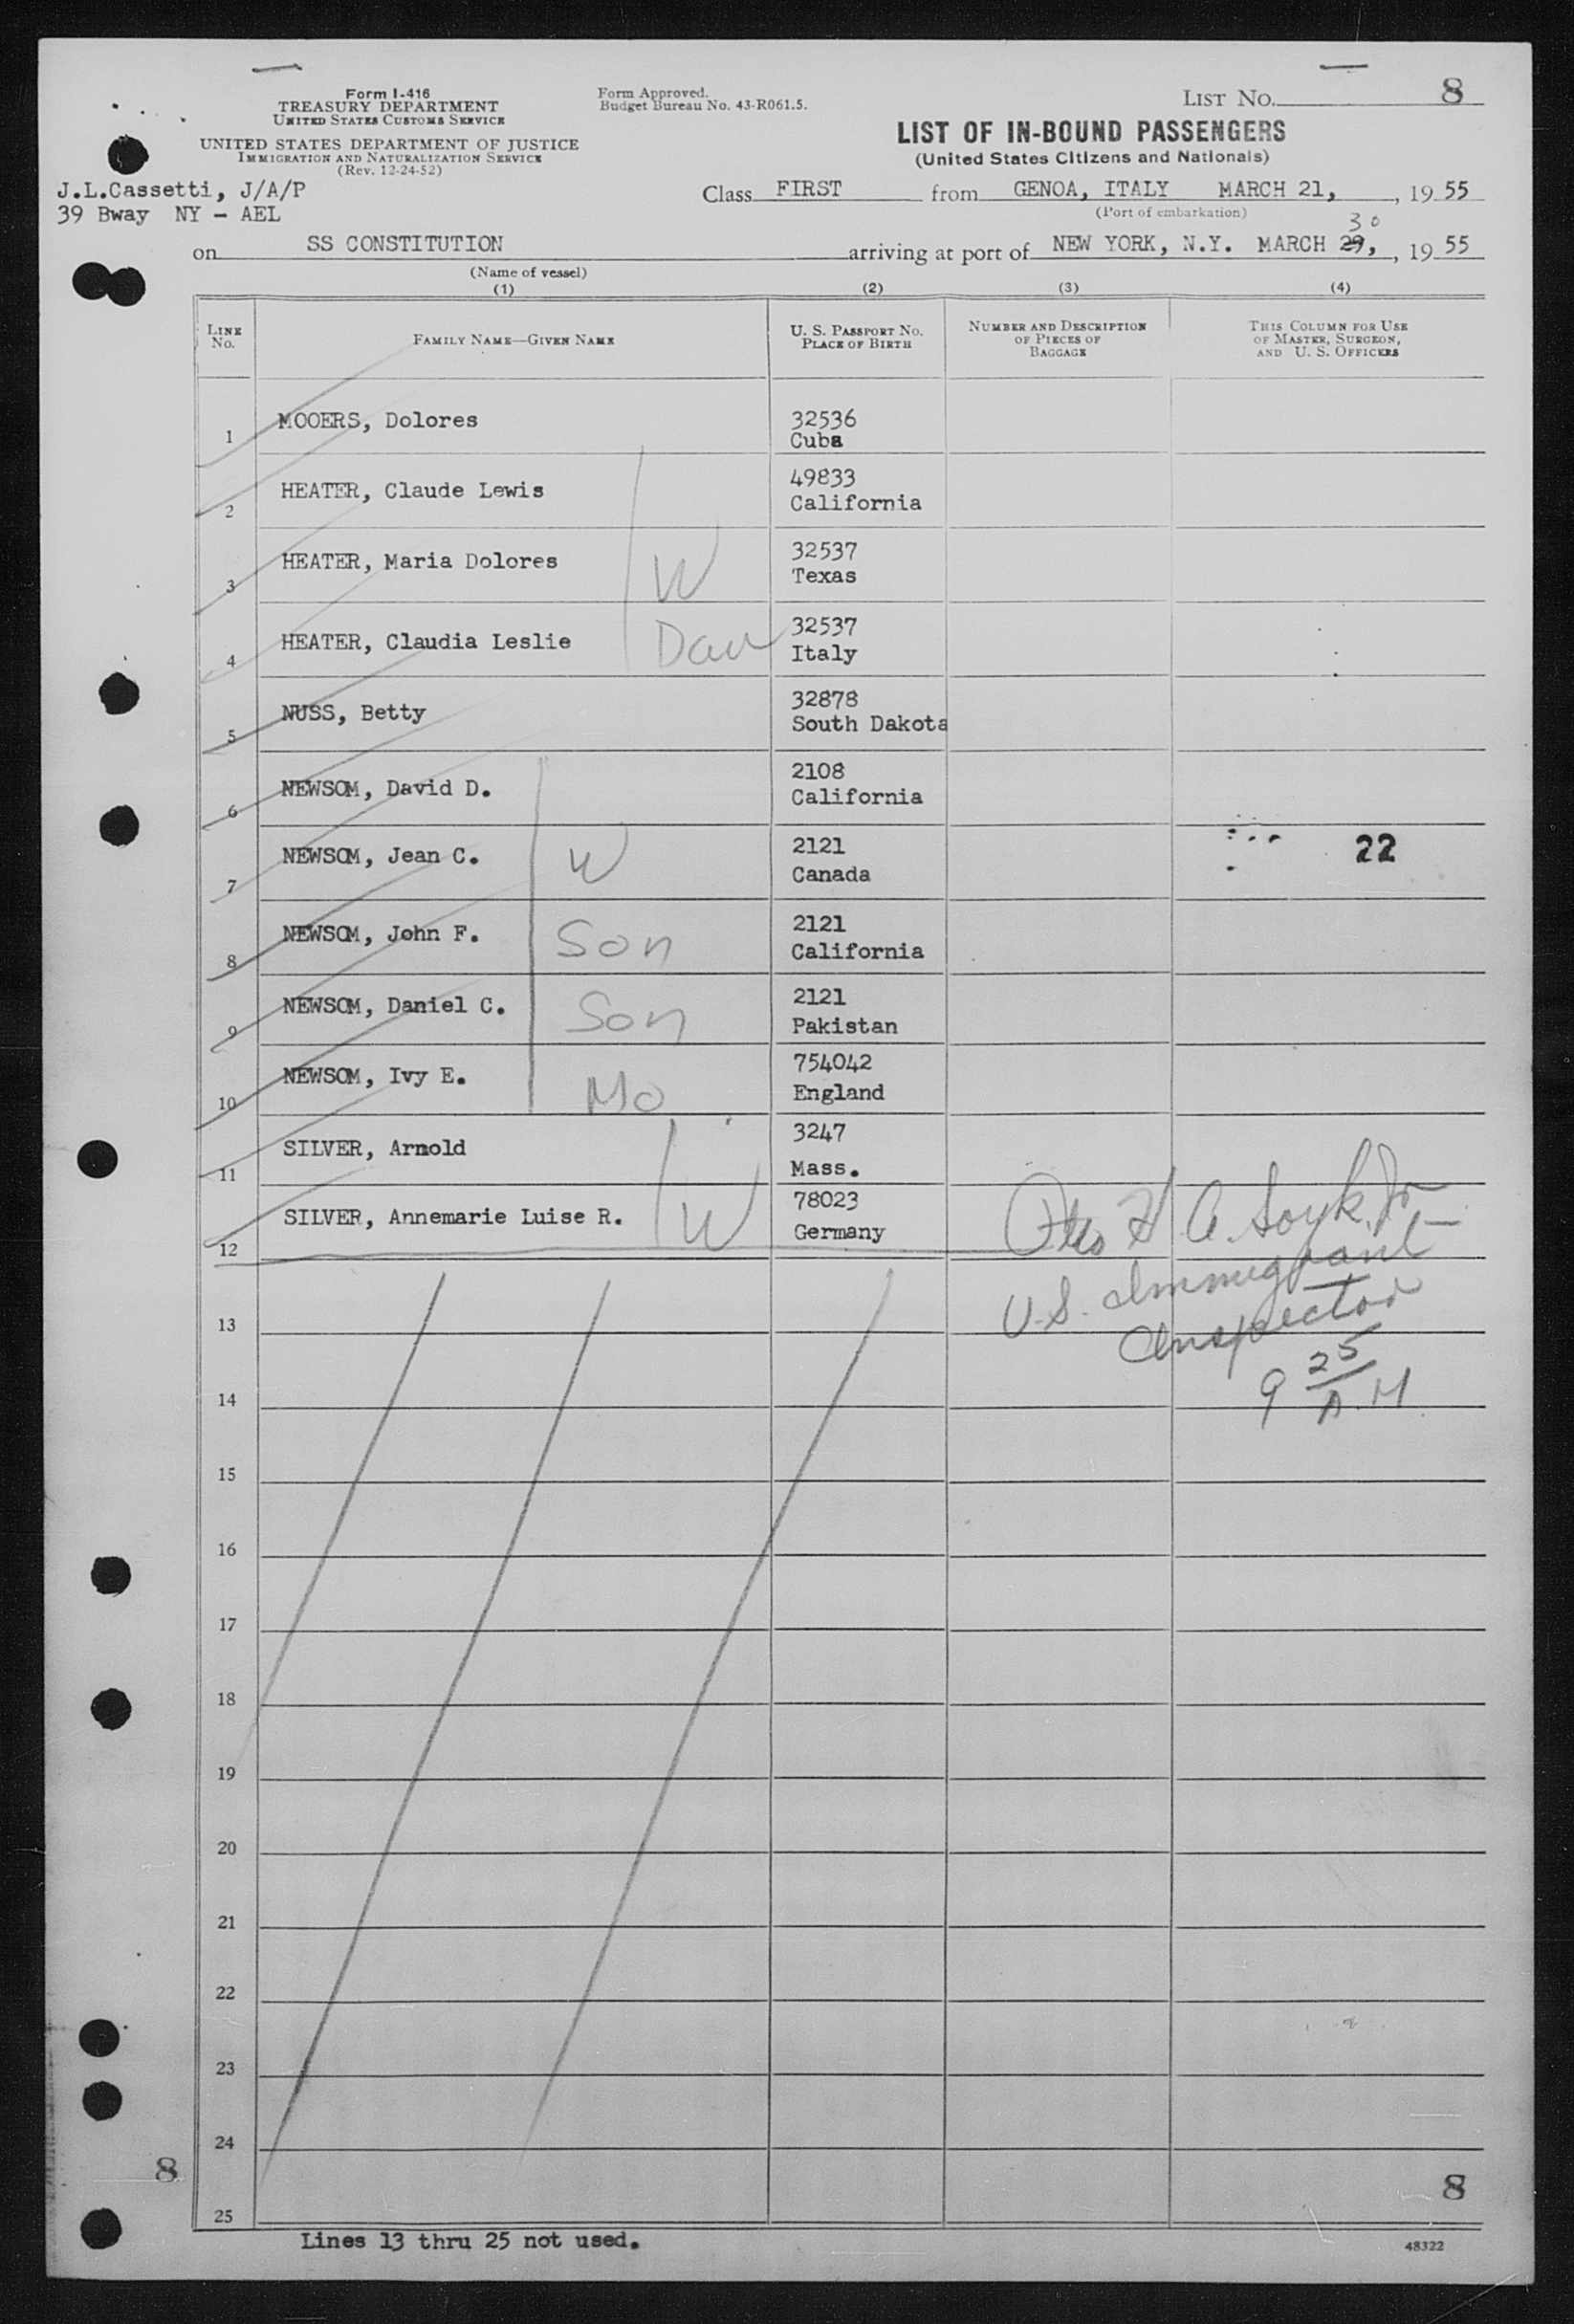 Form I-416
TREASURY DEPARTMENT
UNITED STATES CUSTOMS SERVICE
UNITED STATES DEPARTMENT OF JUSTICE
IMMIGRATION AND NATURALIZATION SERVICE
(Rev. 12-24-52)
Form Approved.
Budget Bureau No. 43-R061.5.
LIST NO. 8
LIST OF IN-BOUND PASSENGERS
(United States Citizens and Nationals)
J.L.Cassetti, J/A/P
39 Bway NY - AEL
Class FIRST from GENOA, ITALY MARCH 21, , 19 55
(Port of embarkation)
30
on SS CONSTITUTION arriving at port of NEW YORK, N.Y. MARCH 29, , 19 55
(Name of vessel)
(1) (2) (3) (4)
LINE NO. FAMILY NAME—GIVEN NAME U. S. PASSPORT NO. PLACE OF BIRTH NUMBER AND DESCRIPTION OF PIECES OF BAGGAGE THIS COLUMN FOR USE OF MASTER, SURGEON, AND U. S. OFFICERS
1 MOOERS, Dolores 32536
Cuba
2 HEATER, Claude Lewis 49833
California
3 HEATER, Maria Dolores W 32537
Texas
4 HEATER, Claudia Leslie Dau 32537
Italy
5 NUSS, Betty 32878
South Dakota
6 NEWSOM, David D. 2108
California
7 NEWSOM, Jean C. W 2121 22
Canada
8 NEWSOM, John F. Son 2121
California
9 NEWSOM, Daniel C. Son 2121
Pakistan
10 NEWSOM, Ivy E. Mo 754042
England
11 SILVER, Arnold 3247
Mass.
12 SILVER, Annemarie Luise R. W 78023
Germany
Otto H A. Soyk, Jr
U.S. Immigrant
Inspector
9 25
A.M
13
14
15
16
17
18
19
20
21
22
23
24
25
8 8
Lines 13 thru 25 not used.
48322